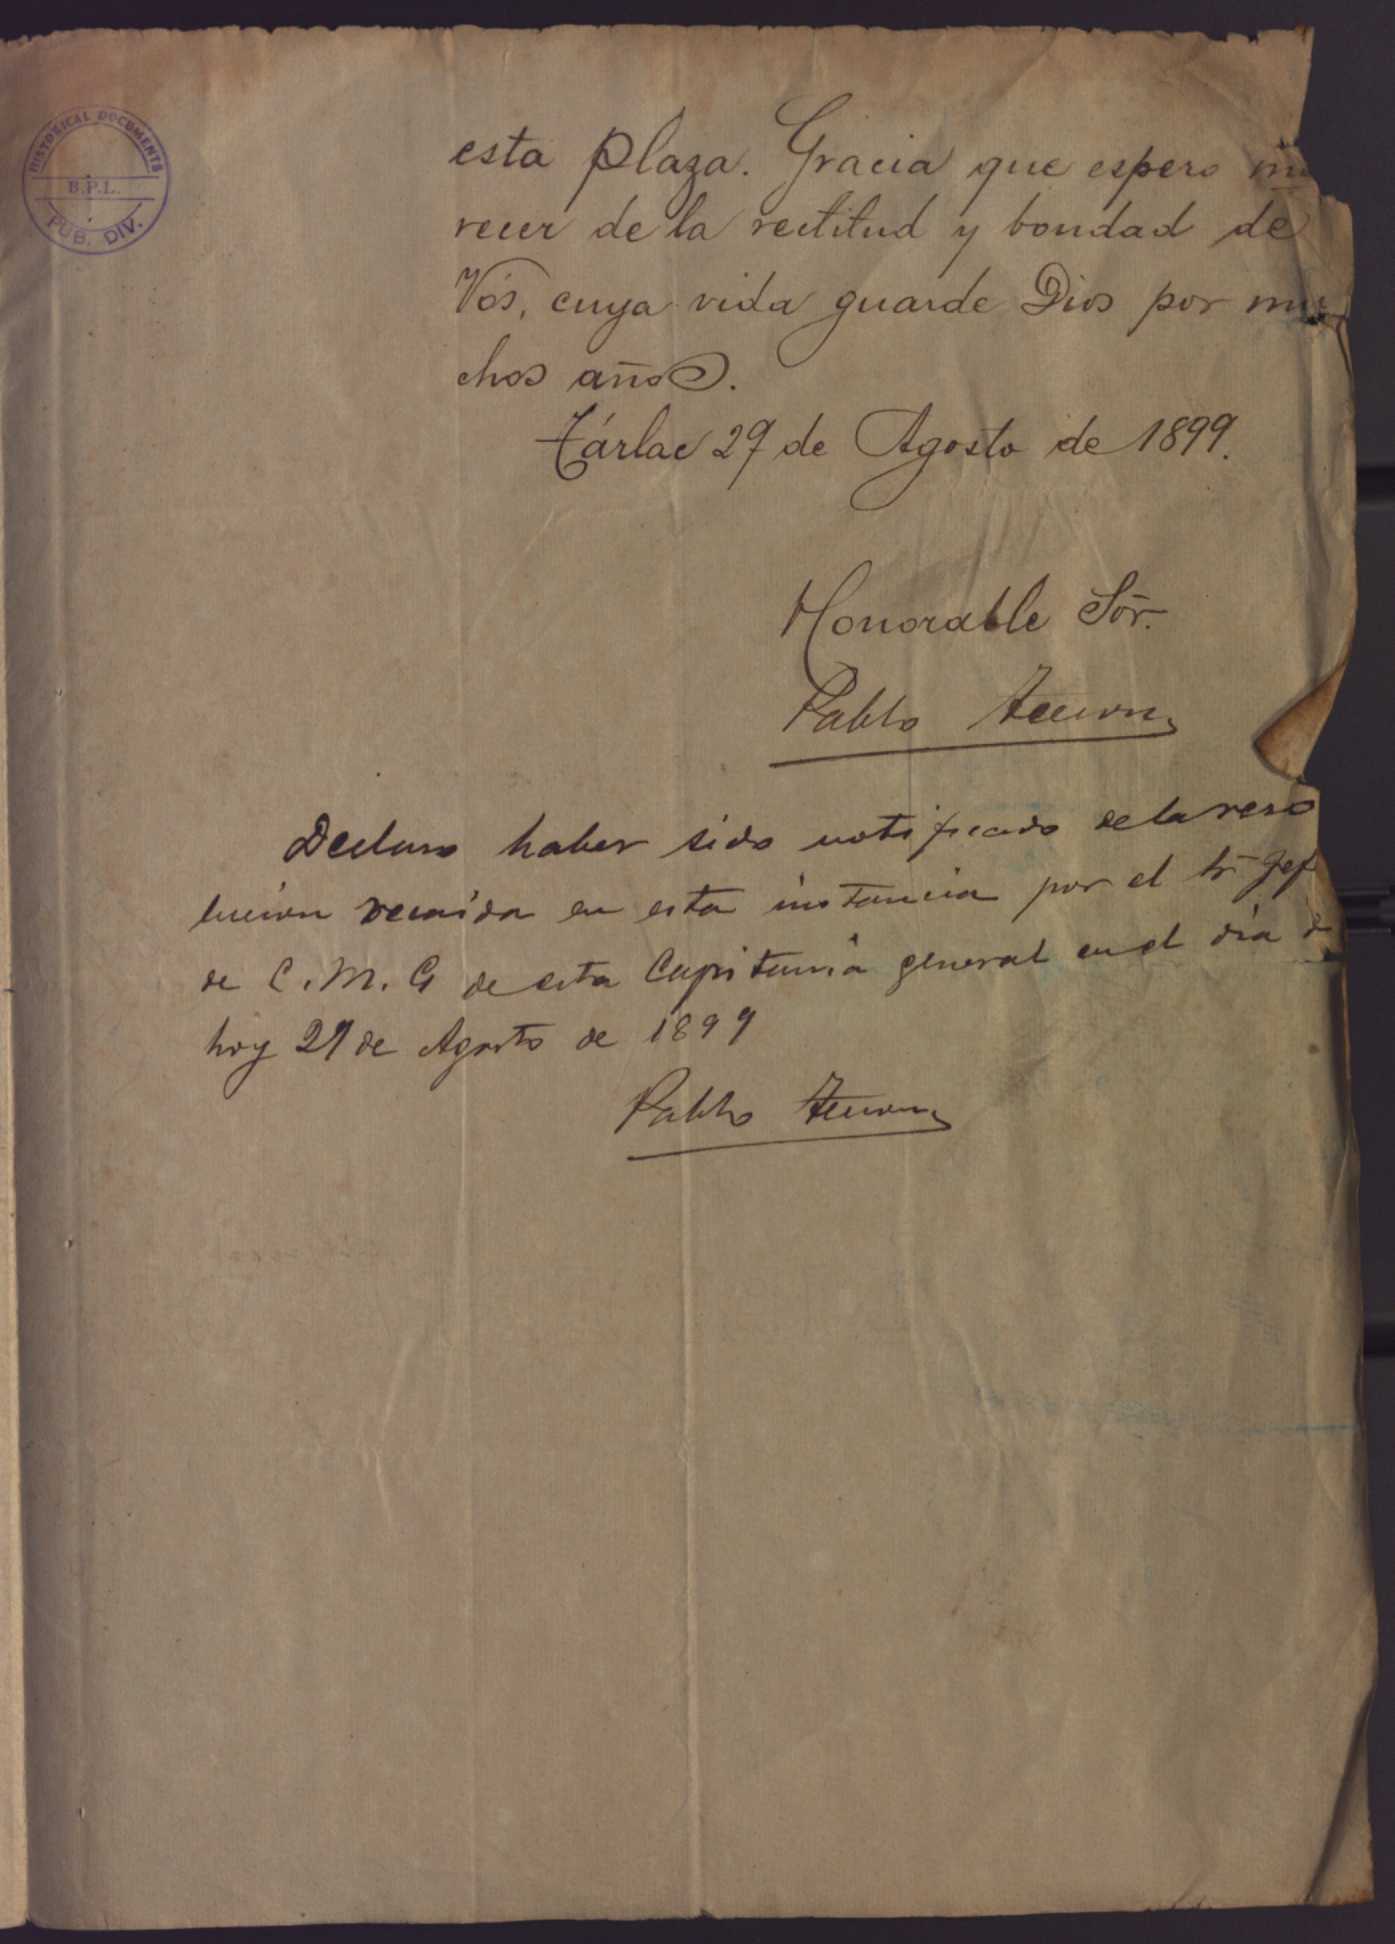 HISTORICAL DOCUMENTS
B.P.L.
PUB. DIV.
esta plaza. Gracia que espero me
recer de la rectitud y bondad de
Vós, cuya vida guarde Dios por mu
chos años.
Tárlac 29 de Agosto de 1899.
Honorable Sõr.
Pablo Tecson
Declaro haber sido notificado de la reso
lución recaída en esta instancia por el Sr Jef
de C.M.G de esta Capitanía general en el día d
hoy 29 de Agosto de 1899
Pablo Tecson